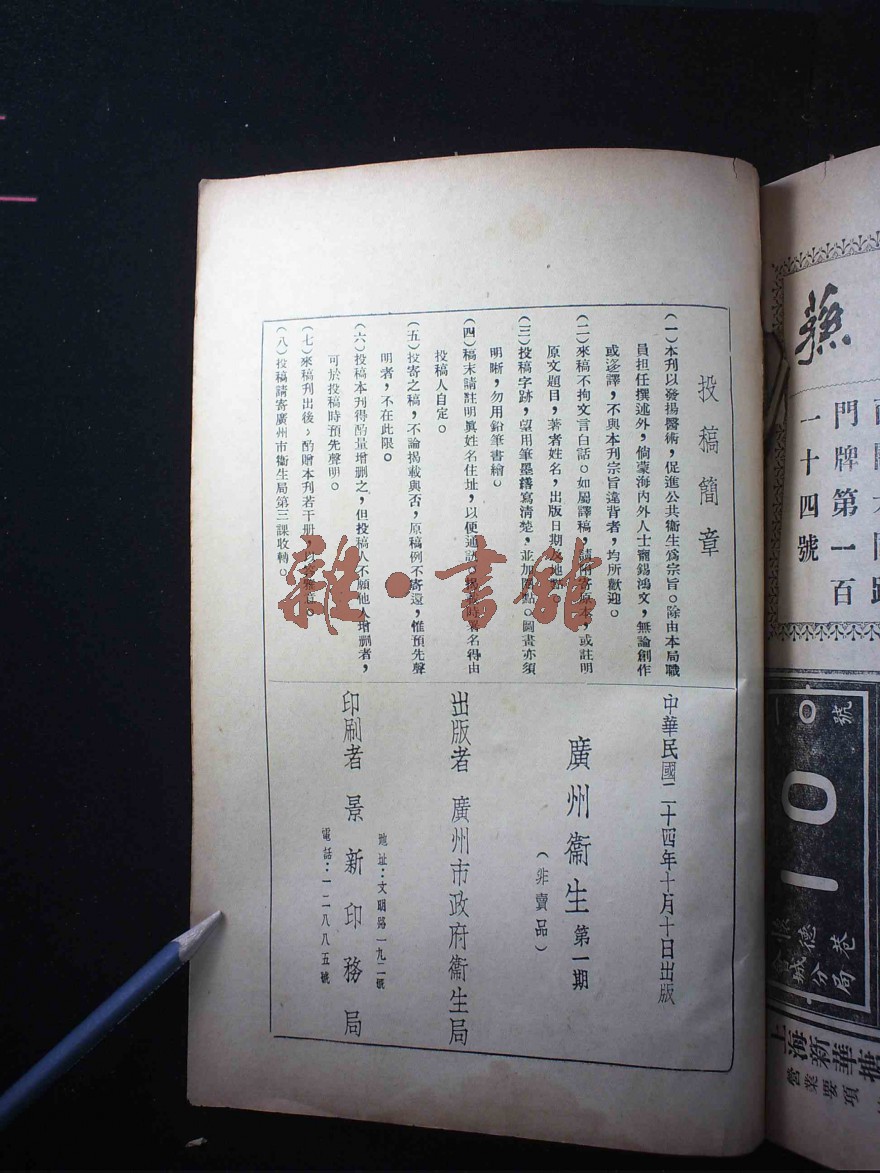 投稿簡章
(一)本刊以發揚醫術，促進公共衞生爲宗旨。除由本局職
員担任撰述外，倘蒙海內外人士寵錫鴻文，無論創作
或迻譯，不與本刊宗旨違背者，均所歡迎。
(二)來稿不拘文言白話。如屬譯稿，請附寄原本，或註明
原文題目，著者姓名，出版日期及地點
(三)投稿字跡，望用筆墨繕寫清楚，並加圈點。圖畫亦須
明晰，勿用鉛筆書繪。
(四)稿末請註明眞姓名住址，以便通訊。揭載時署名得由
投稿人自定。
(五)投寄之稿，不論揭載與否，原稿例不寄還，惟預先聲
明者，不在此限。
(六)投稿本刊得酌量增删之，但投稿人不願他人增删者，
可於投稿時預先聲明。
(七)來稿刊出後，酌贈本刊若干册，以
(八)投稿請寄廣州市衞生局第三課收轉。
中華民國二十四年十月十日出版
廣州衞生 第一期
(非賣品)
出版者 廣州市政府衞生局
地址：文明路一九二號
印刷者 景新印務局
電話：一二八八五號
雜·書館
門牌第一百
一十四號
號
10
德分局
上海新華
營業要項